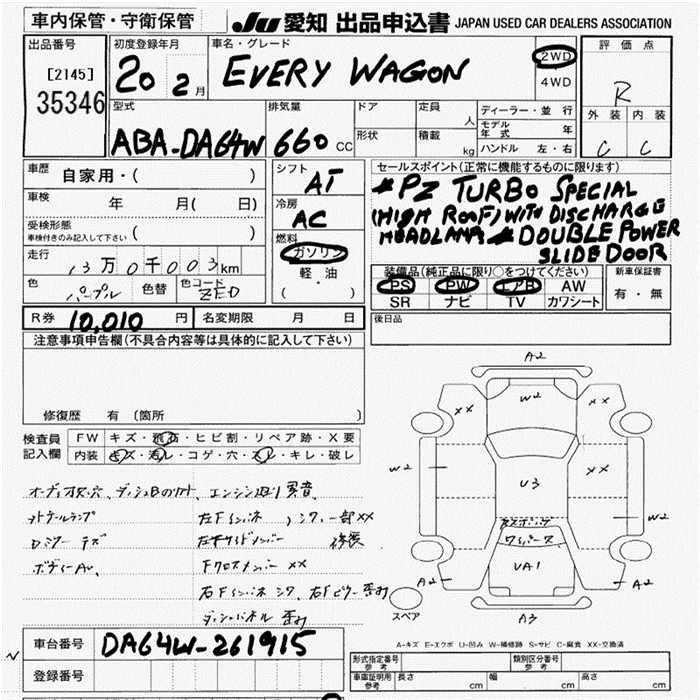 車内保管・守衛保管
JU 愛知 出品申込書 JAPAN USED CAR DEALERS ASSOCIATION
出品番号
[2145]
35346
初度登録年月
20 2月
車名・グレード
EVERY WAGON
2WD
4WD
評価点
R
外装 内装
C C
型式
ABA-DA64W
排気量
660 CC
ドア
形状
定員
人
積載
kg
ディーラー・並行
モデル年式 年
ハンドル 左・右
車歴
自家用・( )
車検
年 月( 日)
受検形態
車検付きのみ記入して下さい ( )
走行
13万0千003km
色
パープル
色替
色コード
ZED
シフト
AT
冷房
AC
燃料
ガソリン
軽・油
( )
セールスポイント(正常に機能するものに限ります)
*PZ TURBO SPECIAL
(HIGH ROOF) WITH DISCHARGE
HEADLAMP * DOUBLE POWER
SLIDE DOOR
装備品(純正品に限り○をつけてください)
PS PW エアB AW
SR ナビ TV カワシート
新車保証書
有・無
R券 10,010 円
名変期限 月 日
後日品
注意事項申告欄(不具合内容等は具体的に記入して下さい)
修復歴 有 (箇所 )
検査員
記入欄
FW キズ・飛石・ヒビ割・リペア跡・X要
内装 キズ・汚レ・コゲ・穴・スレ・キレ・破レ
エンジン廻り異音
左Fインパネ
一部XX
修復
Dミラーキズ
Fクロスメンバー XX
A2
XX
W2
XX
W2
U3
XX
W2
VA1
A2
A2
A3
スペア
A-キズ E-エクボ U-凹み W-補修跡 S-サビ C-腐食 XX-交換済
車台番号
DA64W-261915
登録番号
形式指定番号
参考
類別区分番号
参考
車庫証明用
参考
長さ cm
幅 cm
高さ cm